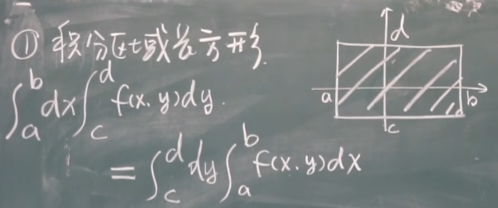 ① 积分区域为方形.
∫_a^b dx ∫_c^d f(x, y) dy.
= ∫_c^d dy ∫_a^b f(x, y) dx
d
a b
c